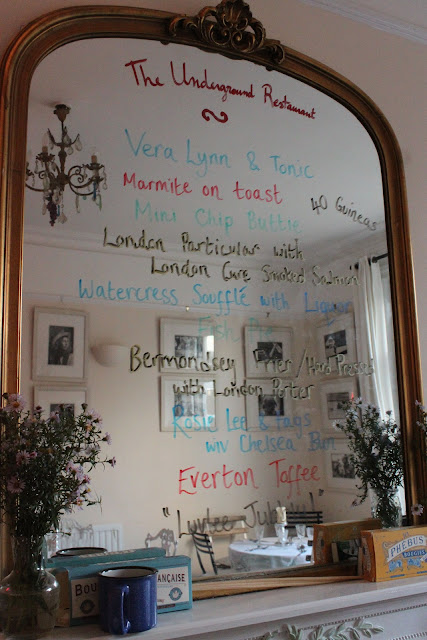 The Underground Restaurant
Vera Lynn & Tonic
Marmite on toast
40 Guineas
Mini Chip Buttie
London Particular with
London Cure Smoked Salmon
Watercress Soufflé with Liquor
Fish Pie
Bermondsey Frier / Hard Pressed
with London Porter
Rosie Lee & Fags
wiv Chelsea Bun
Everton Toffee
"Luvlee Jubbly!"
BOU
NÇAISE
PHEBUS